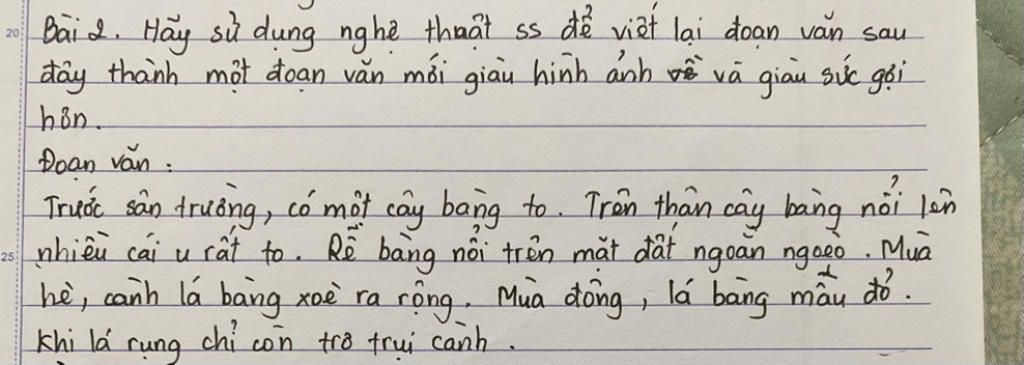 20
Bài 2. Hãy sử dụng nghệ thuật ss để viết lại đoạn văn sau
đây thành một đoạn văn mới giàu hình ảnh về và giàu sức gợi
hơn.
Đoạn văn :
Trước sân trường, có một cây bàng to. Trên thân cây bàng nổi lên
25 nhiều cái u rất to. Rễ bàng nổi trên mặt đất ngoằn ngoèo. Mùa
hè, cành lá bàng xoè ra rộng. Mùa đông, lá bàng mầu đỏ.
Khi lá rụng chỉ còn trơ trụi cành.